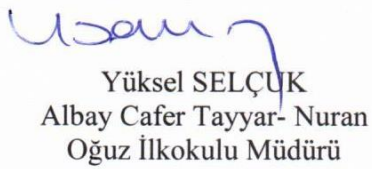 Yüksel SELÇUK
Albay Cafer Tayyar- Nuran
Oğuz İlkokulu Müdürü